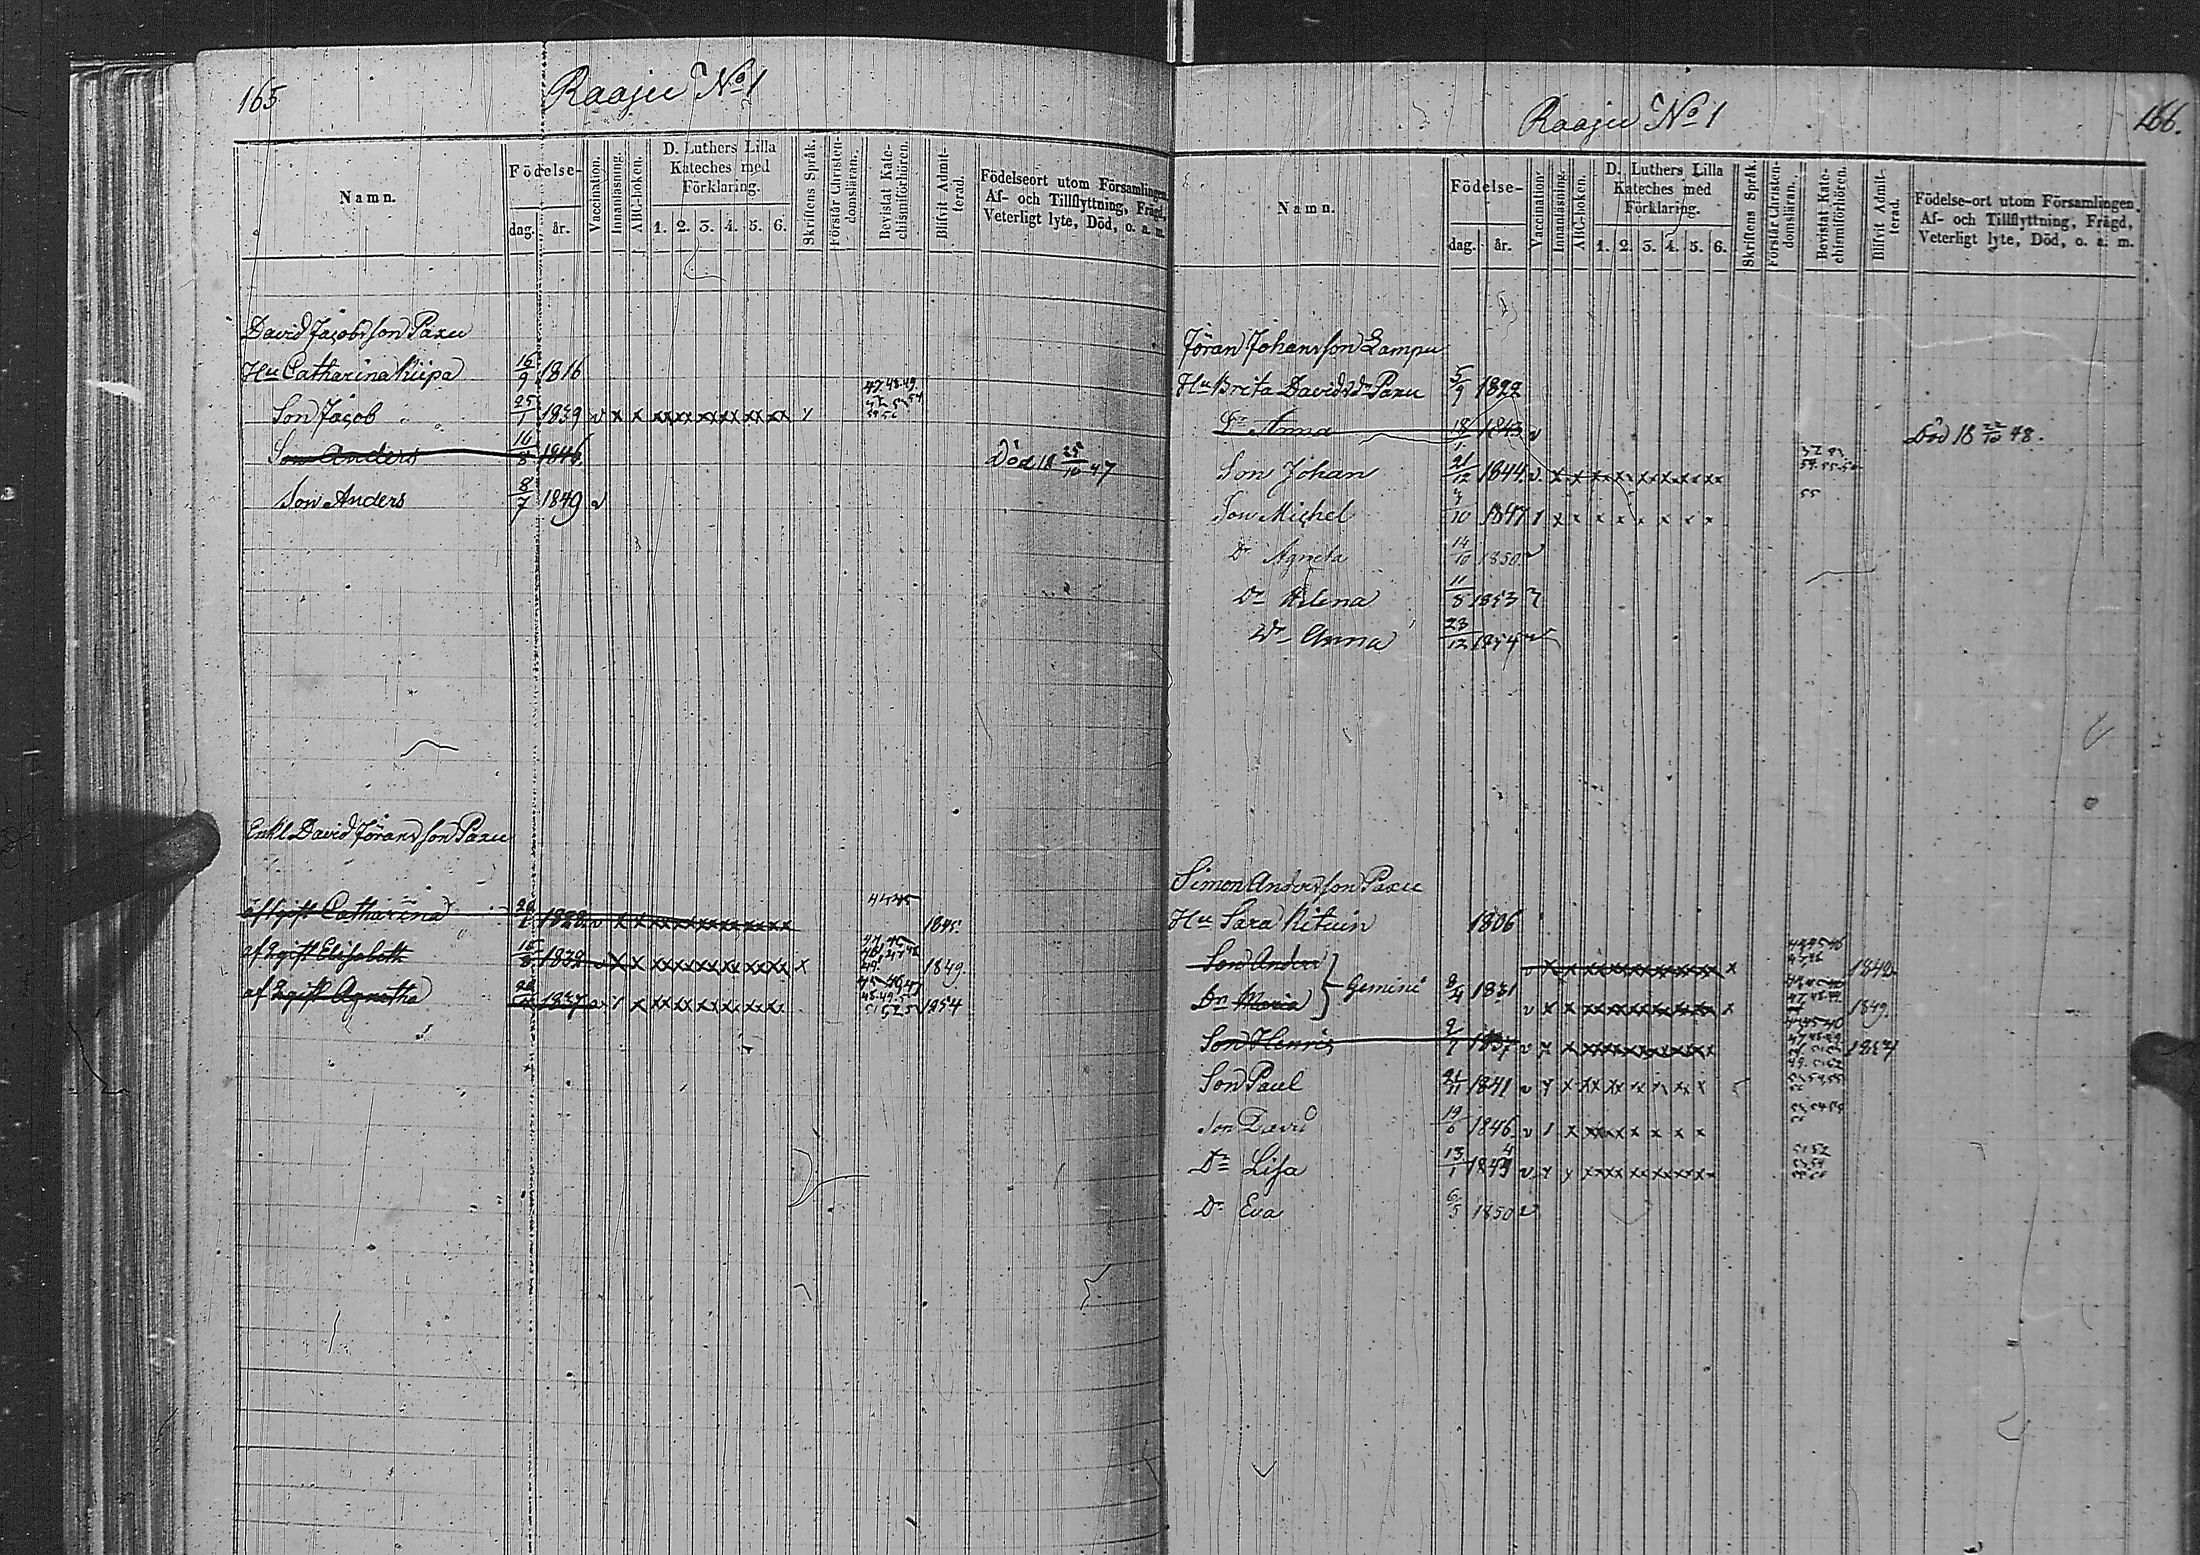 165
Raaju No 1
Namn.
Födelse-
dag.
år.
Vaccination.
Innanläsning.
ABC-boken.
D. Luthers Lilla
Kateches med
Förklaring.
1. 2. 3. 4. 5. 6.
Skriftens Språk.
Förstår Christen-
domsläran.
Bevistat Kate-
chismiförhören.
Blifvit Admit-
terad.
Födelseort utom Församlingen,
Af- och Tillflyttning, Frägd,
Veterligt lyte, Död, o. a. m.
David Jacobsson Paxu
Hu Catharina Kiipa 16/9 1816
Son Jacob 25/1 1839 v x x xx xx xx xx xx xx
47. 48. 49.
Son Anders 14/8 1846 Död 18 25/10 47
Son Anders 8/7 1849 v
Enkl David Göransson Paxu
af 1 gift Catharina 1828 v x x xx xx xx xx xx xx 1845.
af 2 gift Elisabeth 15/8 1832 v x x xx xx xx xx xx xx x 1849.
af 2 gift Agnetha 1837 v 1 x xx xx xx xx xx xx 1854
166.
Raaju No 1
Namn.
Födelse-
dag.
år.
Vaccination.
Innanläsning.
ABC-boken.
D. Luthers Lilla
Kateches med
Förklaring.
1. 2. 3. 4. 5. 6.
Skriftens Språk.
Förstår Christen-
domsläran.
Bevistat Kate-
chismiförhören.
Blifvit Admit-
terad.
Födelse-ort utom Församlingen,
Af- och Tillflyttning, Frägd,
Veterligt lyte, Död, o. a. m.
Jöran Johansson Lampu
Hu Brita Davidsdr Paxu 5/9 1822
Dr Anna 18/1 1843 v Död 18 22/10 48.
Son Johan 21/12 1844. v. x x x x x x x x x x x
Son Michel 1847 1 x x x x x x x x
55
Dr Agneta 14/10 1850 v
Dr Helena 11/8 1853
Dr Anna 23/12 1854 v
Simon Andersson Paxu
Hu Sara Kituin 1806
Son Anders v x x 1848
Gemini 8/4 1831
Dr Maria v x x 1849.
Son Henric 2/7 1837 v x x
Son Paul 1841 v
Son David 19/6 1846. v 1 x
Dr Lisa 13/1 1843 v
Dr Eva 6/5 1850 v